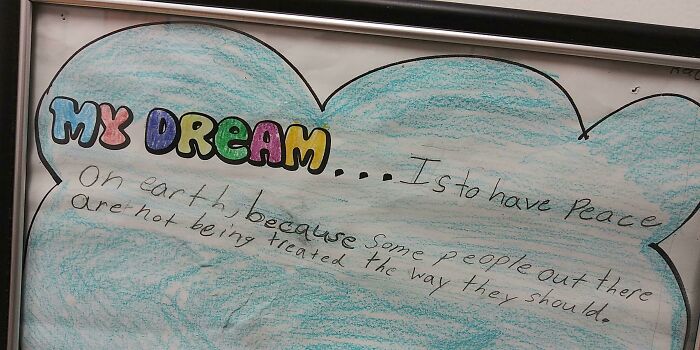 MY DREAM... Is to have Peace
on earth, because some people out there
are not being treated the way they should.